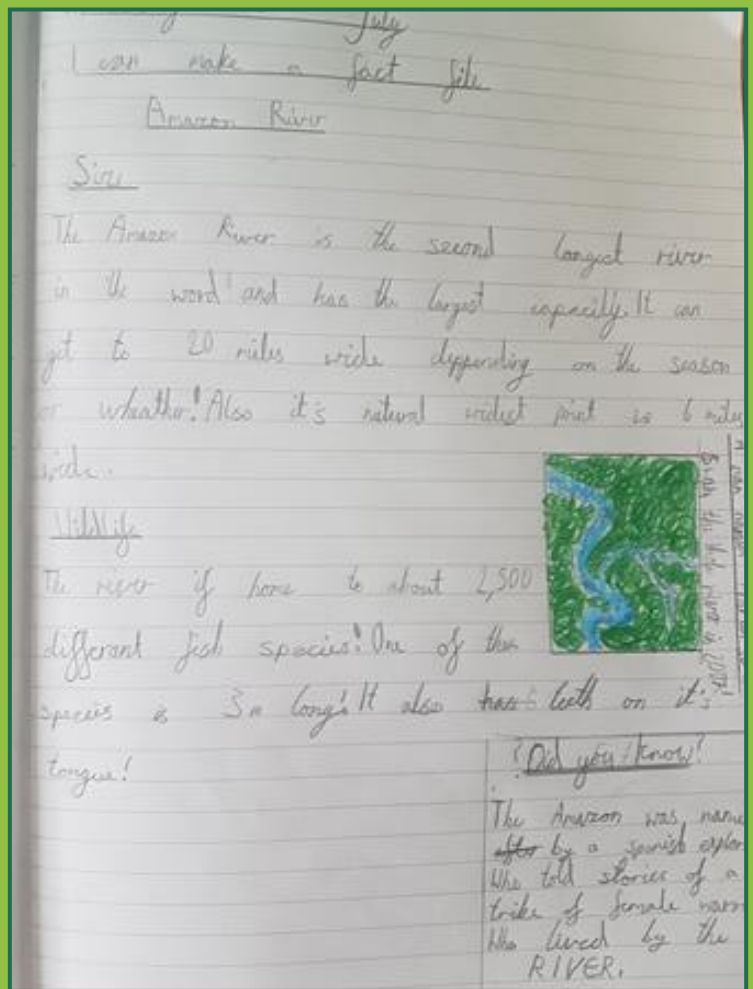 July
I can make a fact file
Amazon River
Size
The Amazon River is the second longest river
in the word and has the largest capacity. It can
get to 20 miles wide deppending on the season
or wheather! Also it's natural widest point is 6 miles
wide.
Wildlife
The river if home to about 2,500
different fish species! One of the
species is 3m long! It also has teeth on it's
tongue!
?Did you know?
The Amazon was name
after by a spanish explor
Who told stories of a
trike of female warr
Who lived by the
RIVER.